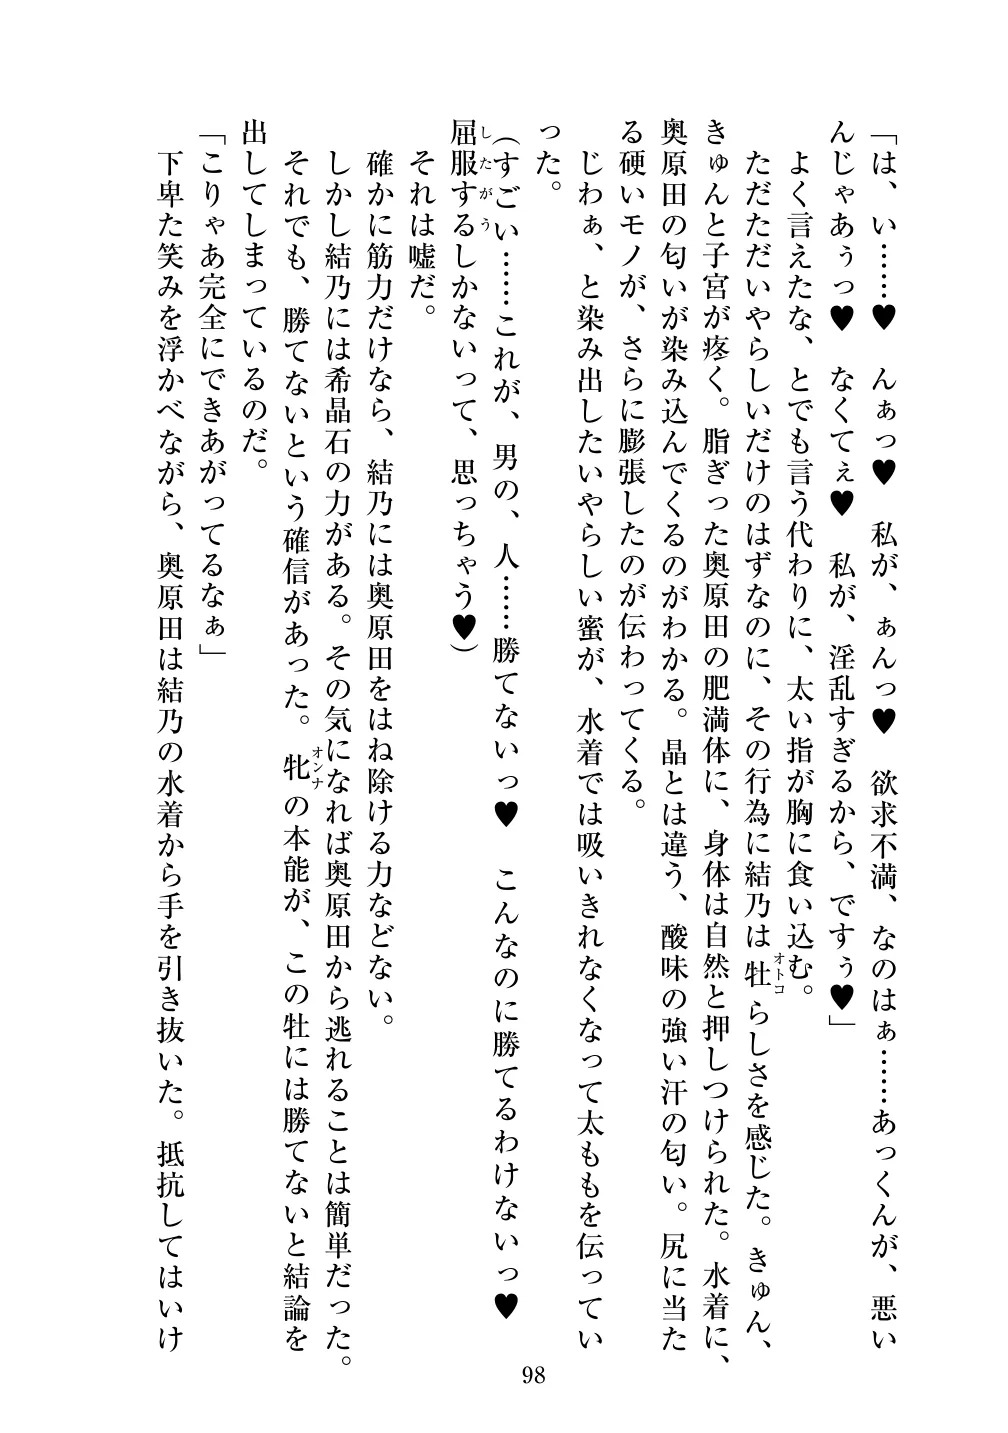 「は、い……♥　んぁっ♥　私が、ぁんっ♥　欲求不満、なのはぁ……あっくんが、悪い
んじゃあぅっ♥　なくてぇ♥　私が、淫乱すぎるから、ですぅ♥」
よく言えたな、とでも言う代わりに、太い指が胸に食い込む。
ただただいやらしいだけのはずなのに、その行為に結乃は牡らしさを感じた。きゅん、
オトコ
きゅんと子宮が疼く。脂ぎった奥原田の肥満体に、身体は自然と押しつけられた。水着に、
奥原田の匂いが染み込んでくるのがわかる。晶とは違う、酸味の強い汗の匂い。尻に当た
る硬いモノが、さらに膨張したのが伝わってくる。
じわぁ、と染み出したいやらしい蜜が、水着では吸いきれなくなって太ももを伝ってい
った。
(すごい……これが、男の、人……勝てないっ♥　こんなのに勝てるわけないっ♥
屈服するしかないって、思っちゃう♥)
したがう
それは嘘だ。
確かに筋力だけなら、結乃には奥原田をはね除ける力などない。
しかし結乃には希晶石の力がある。その気になれば奥原田から逃れることは簡単だった。
それでも、勝てないという確信があった。牝の本能が、この牡には勝てないと結論を
オンナ
出してしまっているのだ。
「こりゃあ完全にできあがってるなぁ」
下卑た笑みを浮かべながら、奥原田は結乃の水着から手を引き抜いた。抵抗してはいけ
98